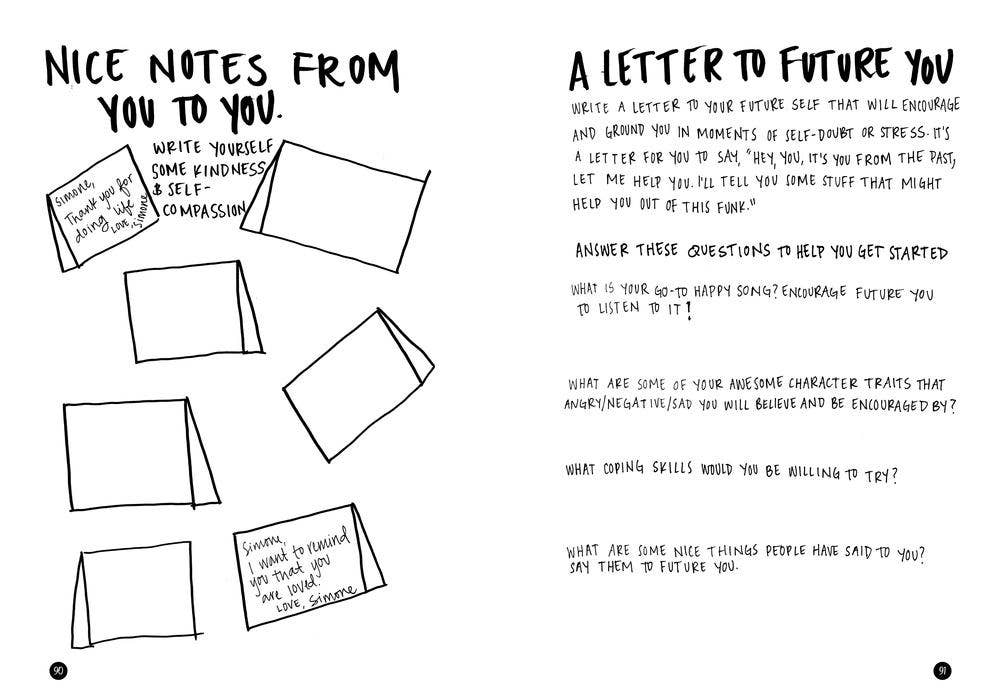 NICE NOTES FROM
YOU TO YOU.
WRITE YOURSELF
SOME KINDNESS
& SELF-
COMPASSION
Simone,
Thank you for
doing life
LOVE, Simone
Simone,
I want to remind
you that you
are loved.
LOVE, Simone
90
A LETTER TO FUTURE YOU
WRITE A LETTER TO YOUR FUTURE SELF THAT WILL ENCOURAGE
AND GROUND YOU IN MOMENTS OF SELF-DOUBT OR STRESS. IT'S
A LETTER FOR YOU TO SAY, "HEY, YOU, IT'S YOU FROM THE PAST,
LET ME HELP YOU. I'LL TELL YOU SOME STUFF THAT MIGHT
HELP YOU OUT OF THIS FUNK."
ANSWER THESE QUESTIONS TO HELP YOU GET STARTED
WHAT IS YOUR GO-TO HAPPY SONG? ENCOURAGE FUTURE YOU
TO LISTEN TO IT!
WHAT ARE SOME OF YOUR AWESOME CHARACTER TRAITS THAT
ANGRY/NEGATIVE/SAD YOU WILL BELIEVE AND BE ENCOURAGED BY?
WHAT COPING SKILLS WOULD YOU BE WILLING TO TRY?
WHAT ARE SOME NICE THINGS PEOPLE HAVE SAID TO YOU?
SAY THEM TO FUTURE YOU.
91